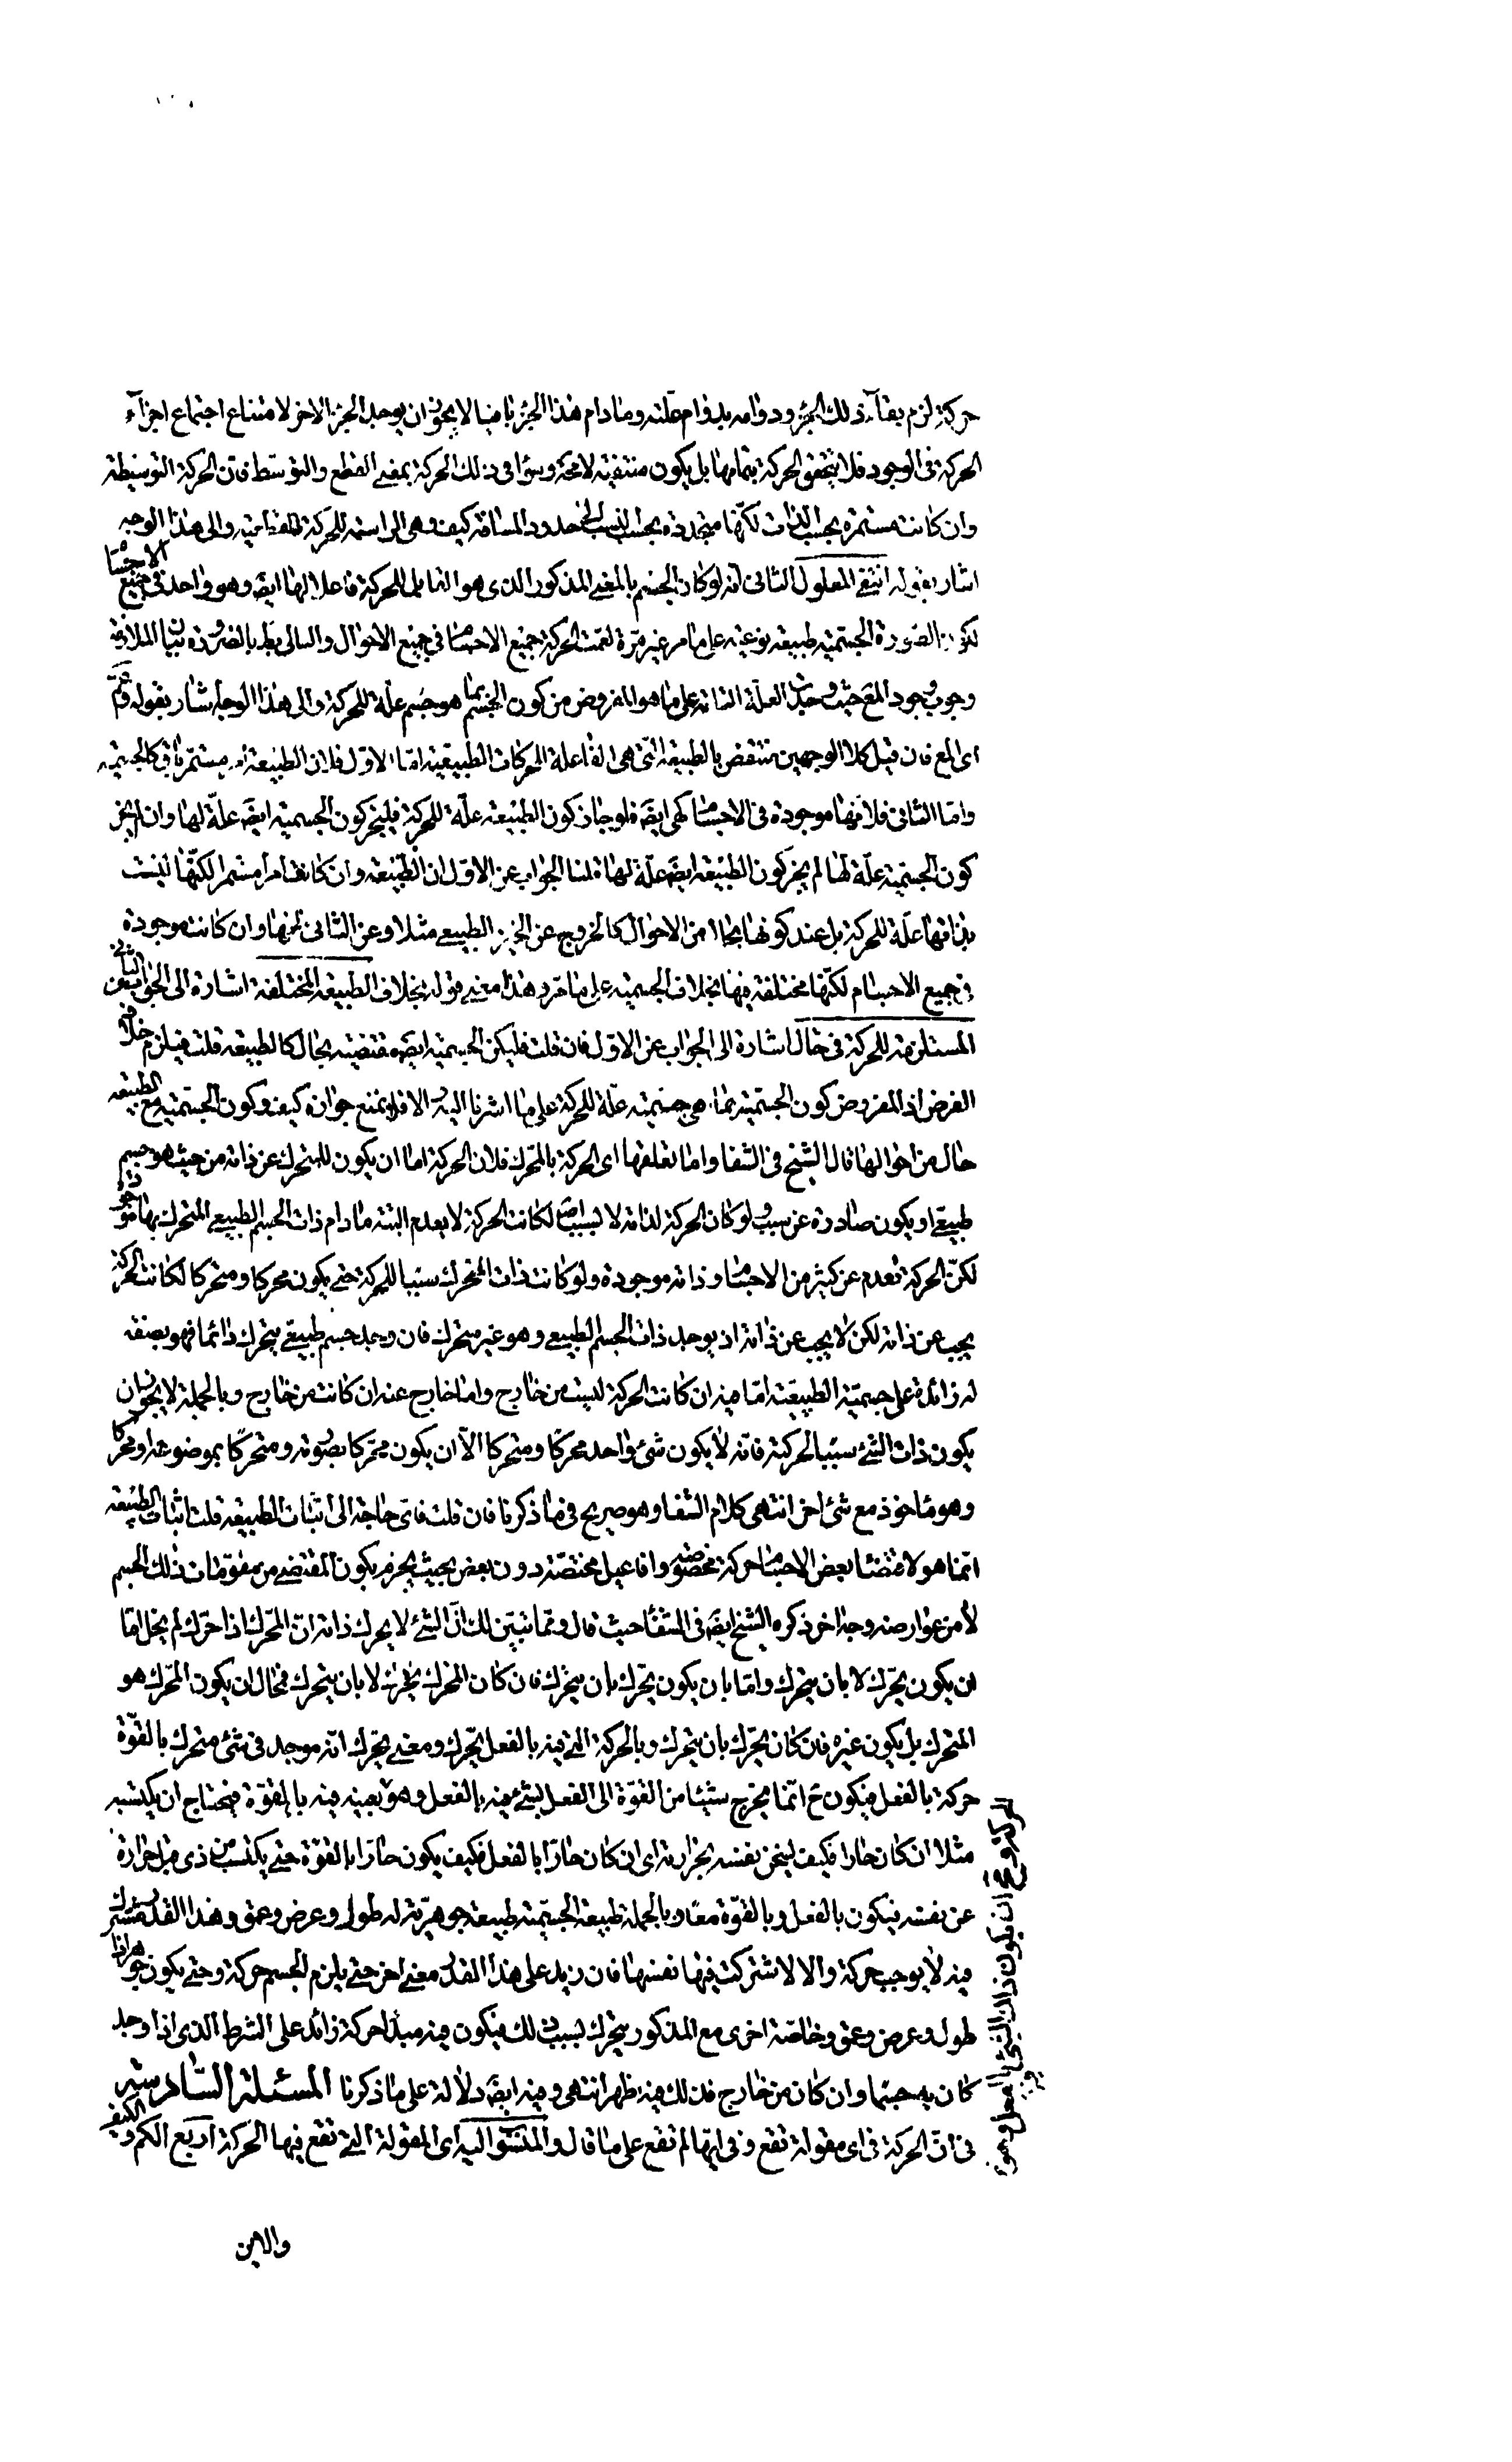 حركة لزم بقاء ذلك الجزء ودوامه بدوام علته وما دام هذا الجزء باقيا لا يجوز ان يوجد الجزء الاخر لامتناع اجتماع اجزاء
الحركة فى الوجود فلا يتحقق الحركة بتمامها بل يكون منتفية لا محة وسواء فى ذلك الحركة بمعنى القطع والتوسط فان الحركة التوسطية
وان كانت مستمرة بحسب الذات لكنها متجددة بحسب النسب الى حدود المسافة كيف وهى الراسمة للحركة القطعية والى هذا الوجه
اشار بقوله انتفى المعلول الثانى انه لو كان الجسم بالمعنى المذكور الذى هو القابل للحركة فاعلا لها ايضا وهو واحد فى جميع الاجسام
لكون الصورة الجسمية طبيعة نوعية على ما مر غير مرة لعمت الحركة جميع الاجسام فى جميع الاحوال والتالى بط بالضرورة بيان الملازمة
وجوب وجود المع حيث وجدت العلة التامة على ما هو المفروض من كون الجسم بما هو جسم علة للحركة والى هذا الوجه اشار بقوله وعم
اى المع فان قيل كلا الوجهين منتقض بالطبيعة التى هى الفاعلة للحركات الطبيعية اما الاول فلان الطبيعة امر مستمر باق كالجسمية
واما الثانى فلانها موجودة فى الاجسام كهى ايضا فلو جاز كون الطبيعة علة للحركة فليجز كون الجسمية ايضا علة لها وان لم يجز
كون الجسمية علة لها لم يجز كون الطبيعة ايضا علة لها قلنا الجواب عن الاول ان الطبيعة وان كانت امرا مستمرا لكنها ليست
بذاتها علة للحركة بل عند كونها بحال من الاحوال كالخروج عن الحيز الطبيعى مثلا وعن الثانى انها وان كانت موجودة
فى جميع الاجسام لكنها مختلفة فيها بخلاف الجسمية على ما مر وهذا معنى قوله بخلاف الطبيعة المختلفة اشارة الى الجواب عن الثانى
المستلزمة للحركة فى حال اشارة الى الجواب عن الاول فان قلت فليكن الجسمية ايضا مقتضية بحال كالطبيعة قلت فيلزم خلاف
الفرض اذ المفروض كون الجسمية بما هى جسمية علة للحركة على ما اشرنا اليه والا فلا يمنع جوازه كيف وكون الجسمية مع الطبيعة
حال من احوالها قال الشيخ فى الشفا واما تعلقها اى الحركة بالمحرك فلان الحركة اما ان يكون للمتحرك عن ذاته من حيث هو جسم
طبيعى او يكون صادرة عن سبب ولو كان الحركة لذاته لا لسبب اصلا لكانت الحركة لا يعدم البتة ما دام ذات الجسم الطبيعى المتحرك بها موجودة
لكن الحركة تعدم عن كثير من الاجسام وذاته موجودة ولو كانت ذات المتحرك سببا للحركة حتى يكون محركا ومتحركا لكانت الحركة
يجب عن ذاته لكن لا يجب عن ذاته اذ يوجد ذات الجسم الطبيعى وهو غير متحرك فان وجد جسم طبيعى يتحرك دائما فهو بصفة
له زائدة على جسمية الطبيعية اما فيه ان كانت الحركة ليست من خارج واما خارج عنه ان كانت من خارج وبالجملة لا يجوز ان
يكون ذات الشئ سببا لحركته فانه لا يكون شئ واحد محركا ومتحركا الا ان يكون محركا بصورته ومتحركا بموضوعه او محركا
وهو ماخوذ مع شئ اخر انتهى كلام الشفا وهو صريح فى ما ذكرنا فان قلت فاى حاجة الى اثبات الطبيعة قلت اثبات الطبيعة
انما هو لاقتضاء بعض الاجسام حركة مخصوصة وافاعيل مختصة دون بعض بحيث يجزم بكون المقتضى من مقومات ذلك الجسم
لا من عوارضه وجه اخر ذكره الشيخ ايضا فى الشفا حيث قال ومما نبين لك ان الشئ لا يحرك ذاته ان المحرك اذا حرك لم يخل اما
ان يكون يحرك لا بان يتحرك واما بان يكون يحرك بان يتحرك فان كان المحرك يحرك لا بان يتحرك فمحال ان يكون المحرك هو
المتحرك بل يكون غيره فان كان يحرك بان يتحرك وبالحركة التى فيه بالفعل يحرك ومعنى يحرك انه موجد فى شئ متحرك بالقوة
حركة بالفعل فيكون ح انما يخرج شيئا من القوة الى الفعل بشئ فيه بالفعل وهو بعينه فيه بالقوة فيحتاج ان يكتسبه
مثلا ان كان حارا فكيف يسخن نفسه بحرارته اى ان كان حارا بالفعل فكيف يكون حارا بالقوة حتى يكتسب من ذى قبل حرارة
عن نفسه فيكون بالفعل وبالقوة معا وبالجملة طبيعة الجسمية طبيعة جوهرية له طول وعرض وعمق وهذا القدر مشترك
فيه لا يوجب حركة والا لاشتركت فيها نفسها فان زيد على هذا القدر معنى اخر حتى يلزم الجسم حركة وحتى يكون جوهرا ذا
طول وعرض وعمق وخاصة اخرى مع المذكور يتحرك بسبب ذلك فيكون فيه مبدأ حركة زائد على الشرط الذى اذا وجد
كان به جسما وان كان من خارج فذلك فيه اظهر انتهى وفيه ايضا دلالة على ما ذكرنا المسئلة السادسة
فى ان الحركة فى اى مقولة تقع وفى ايها لم تقع على ما قال والمنسوب اليه اى المقولة التى تقع فيها الحركة اربع الكم والكيف
ان يكون ذلك الشئ بالفعل وهو
والاين